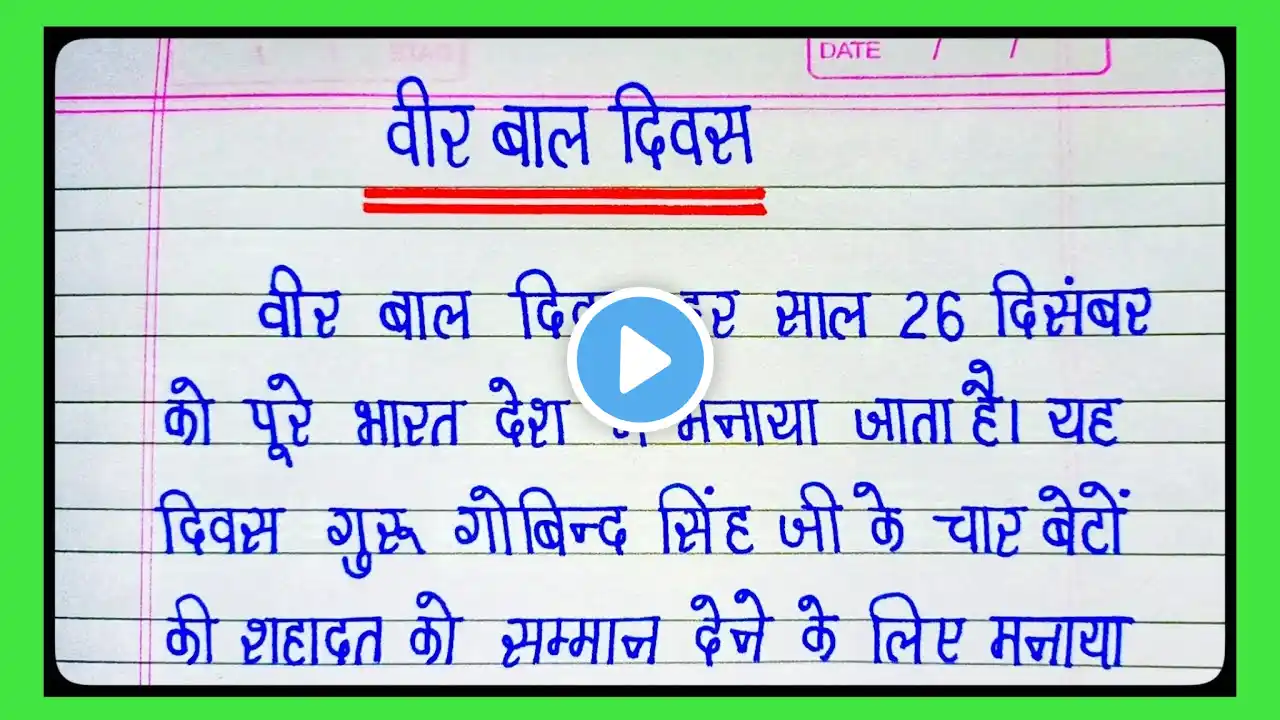 DATE / /
वीर बाल दिवस
वीर बाल हर साल 26 दिसंबर
को पूरे भारत देश मनाया जाता है। यह
दिवस गुरू गोबिन्द सिंह जी के चार बेटों
की शहादत को सम्मान देने के लिए मनाया